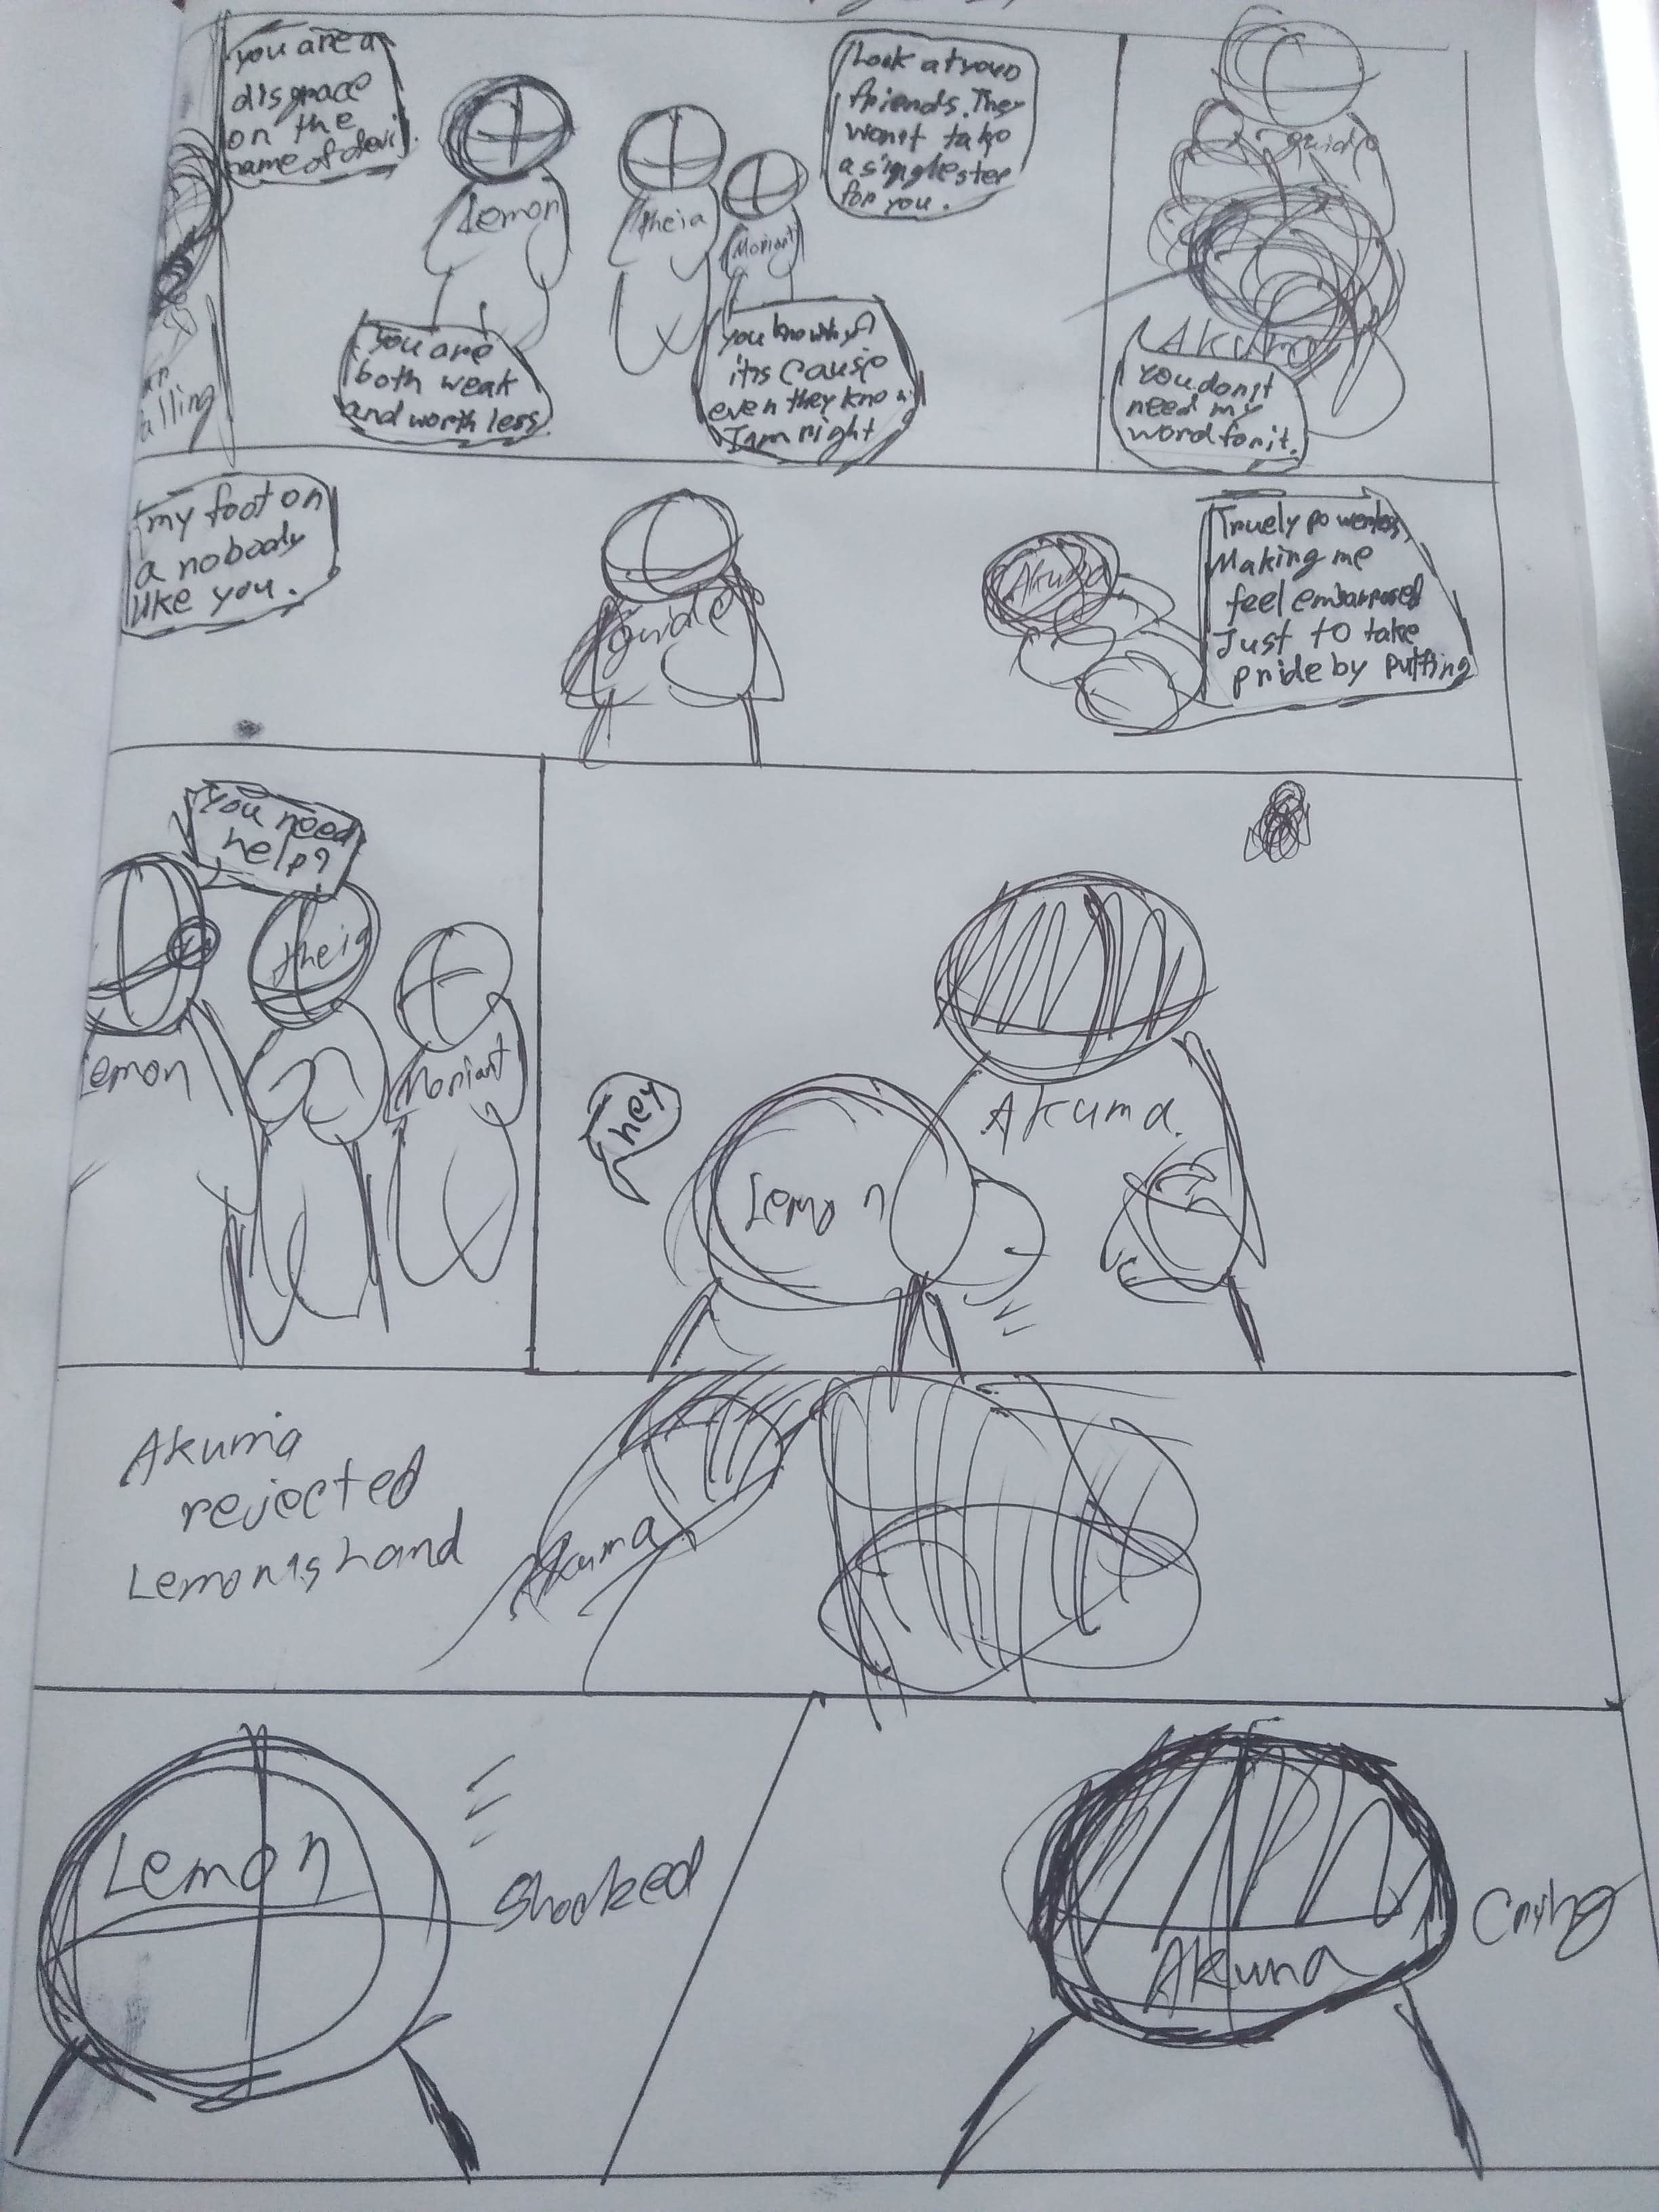 you are a
disgrace
on the
name of devil.
Lemon
theia
Moriant
Look at your
friends. They
won't take
a single step
for you.
You are
both weak
and worthless
you know why?
it's cause
even they know
I am right
guide
Akuma
You don't
need my
word for it.
alling
my foot on
a nobody
like you.
guide
Akuma
Truely powerless,
Making me
feel embarrased
Just to take
pride by putting
You need
help?
emon
theia
Moriant
hey
Lemon
Akuma.
Akuma
rejected
Lemon's hand
Akuma
Lemon
Shocked
Akuma
Crying